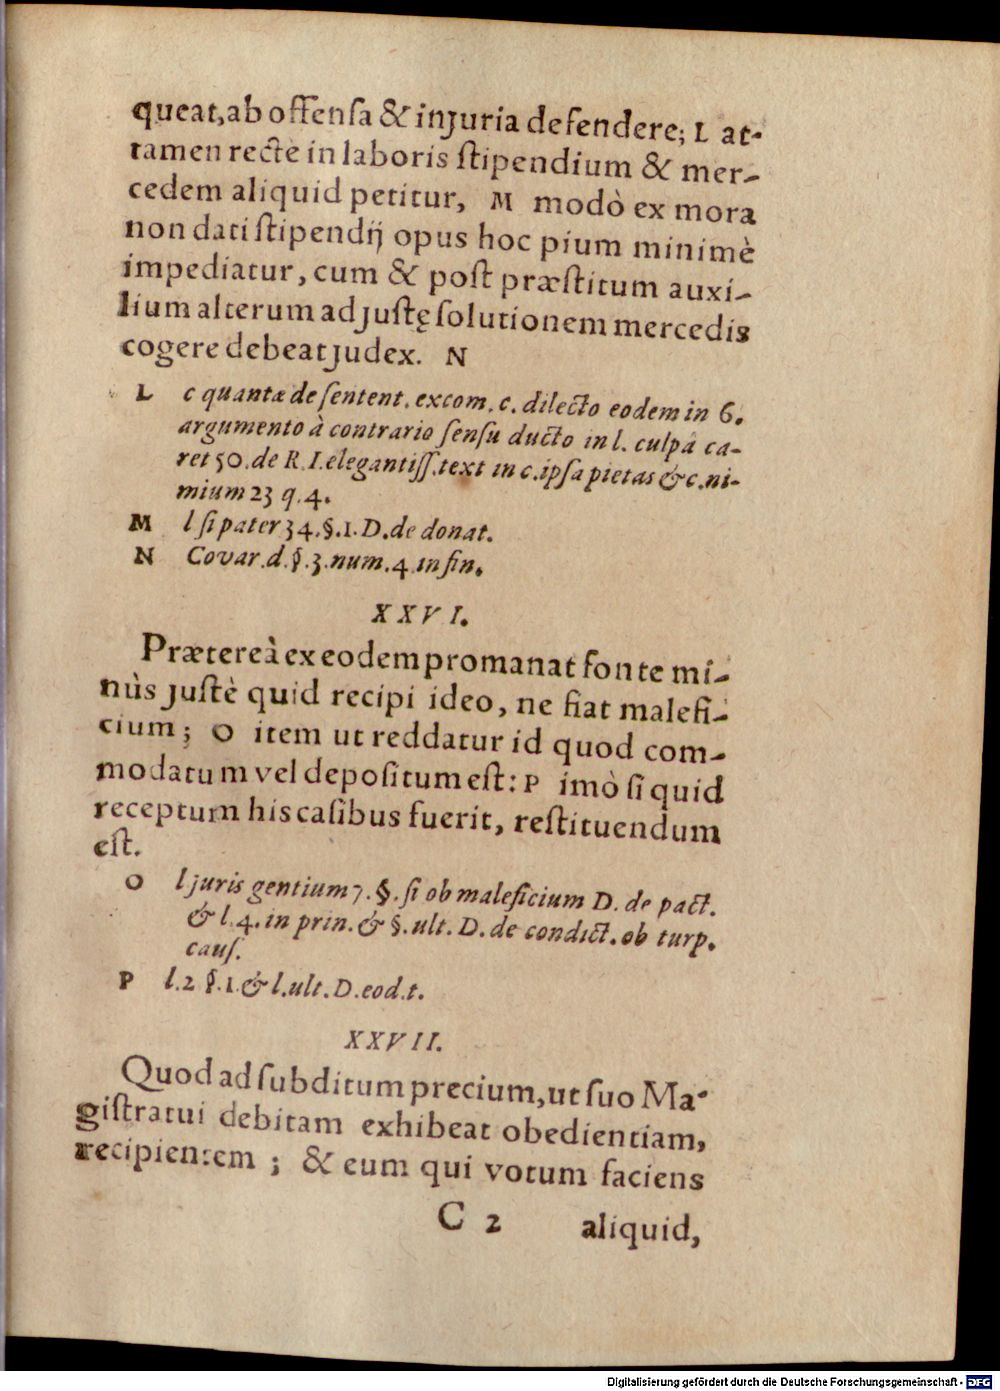 queat, ab offensa & injuria defendere; L at-
tamen rectè in laboris stipendium & mer-
cedem aliquid petitur, M modò ex mora
non dati stipendij opus hoc pium minimè
impediatur, cum & post præstitum auxi-
lium alterum ad justę solutionem mercedis
cogere debeat judex. N
L c quantæ de sentent. excom. c. dilecto eodem in 6.
argumento à contrario sensu ducto in l. culpá ca-
ret 50. de R. I. elegantiss. text in c. ipsa pietas & c. ni-
mium 23 q. 4.
M l si pater 34. §. 1. D. de donat.
N Covar. d. §. 3. num. 4 in fin.
XXVI.
Prætereà ex eodem promanat fonte mi-
nùs justè quid recipi ideo, ne fiat malefi-
cium; O item ut reddatur id quod com-
modatum vel depositum est: P imò si quid
receptum his casibus fuerit, restituendum
est.
O l juris gentium 7. §. si ob maleficium D. de pact.
& l. 4. in prin. & §. ult. D. de condict. ob turp.
caus.
P l. 2 §. 1. & l. ult. D. eod. t.
XXVII.
Quod ad subditum precium, ut suo Ma-
gistratui debitam exhibeat obedientiam,
recipientem; & eum qui votum faciens
C 2 aliquid,
Digitalisierung gefördert durch die Deutsche Forschungsgemeinschaft - DFG